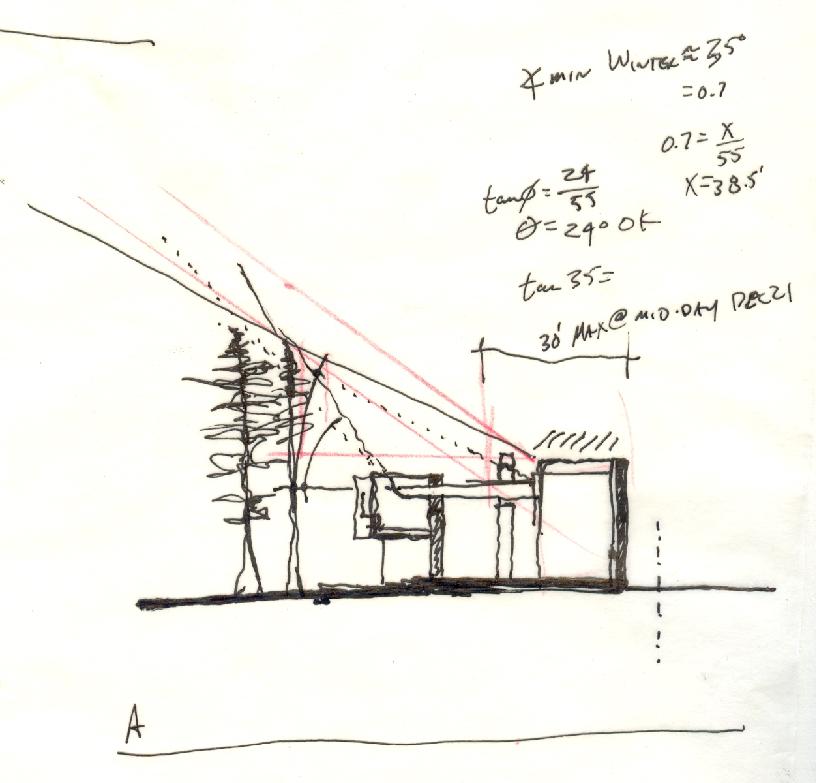 ∡ MIN WINTER ≈ 35°
= 0.7
0.7 = X/55
X = 38.5'
tan ϕ = 24/55
θ = 24° OK
tan 35 =
30' MAX @ MID-DAY DEC 21
A